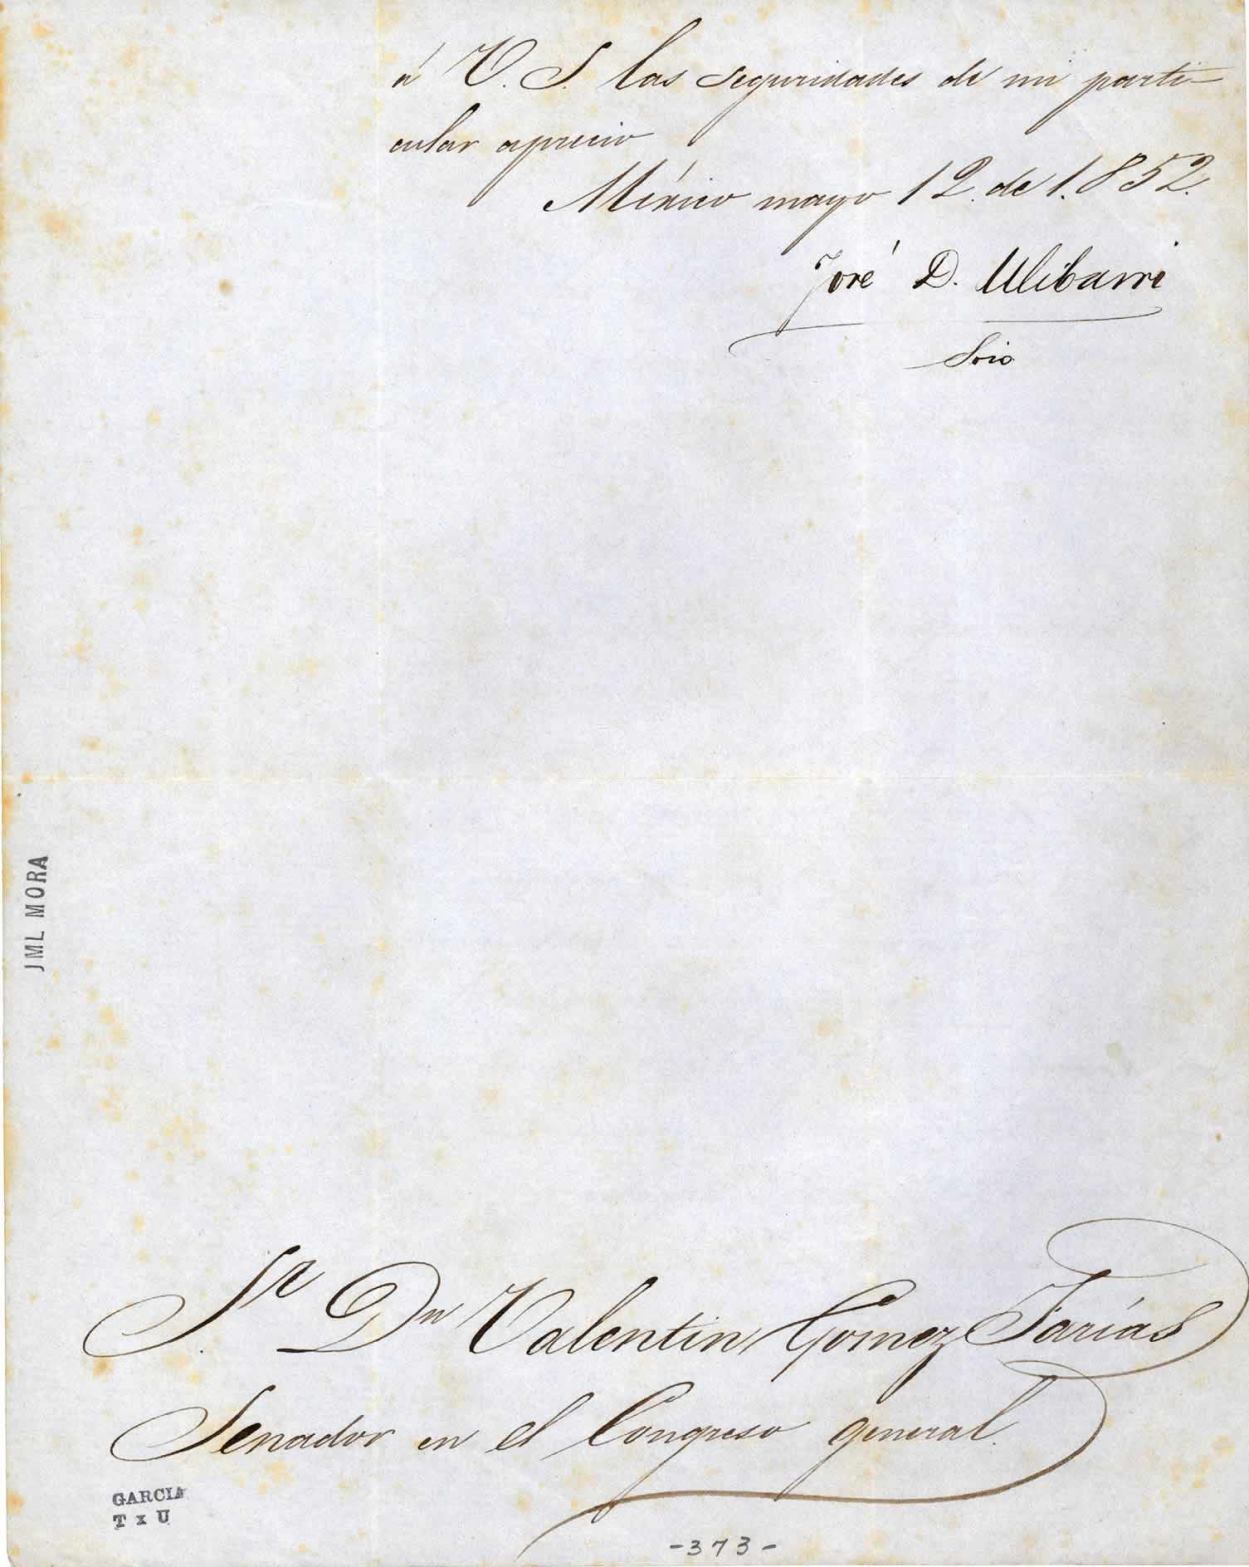 á V. S. las seguridades de mi parti-
cular aprecio
México mayo 12. de 1.852.
José D. Ulibarri
Srio
JML MORA
Sr. Dn Valentin Gomez Farías
Senador en el Congreso general.
GARCIA
T x U
-373-